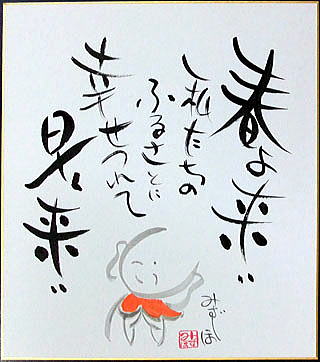 春よ来い
私たちの
ふるさとに
幸せつれて
早く来い
みずほ